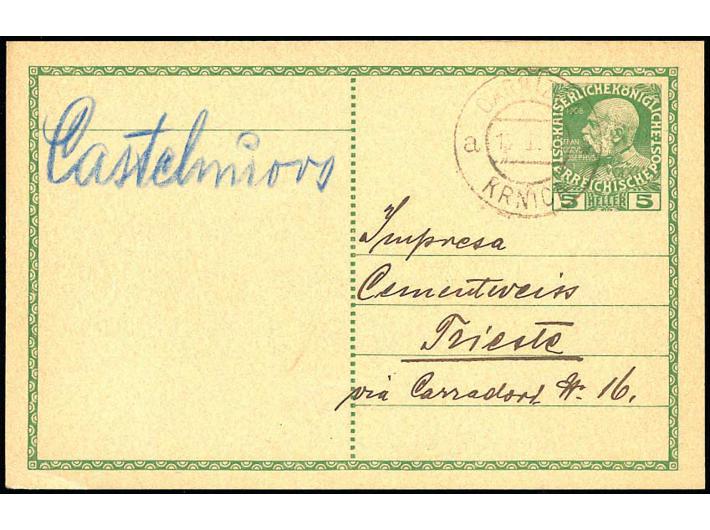 Castelnuovo
a
KRNIC
KAISERLICHE KÖNIGLICHE
ÖSTERREICHISCHE
5 HELLER 5
Impresa
Cementweiss
Trieste
via Carradori N. 16.